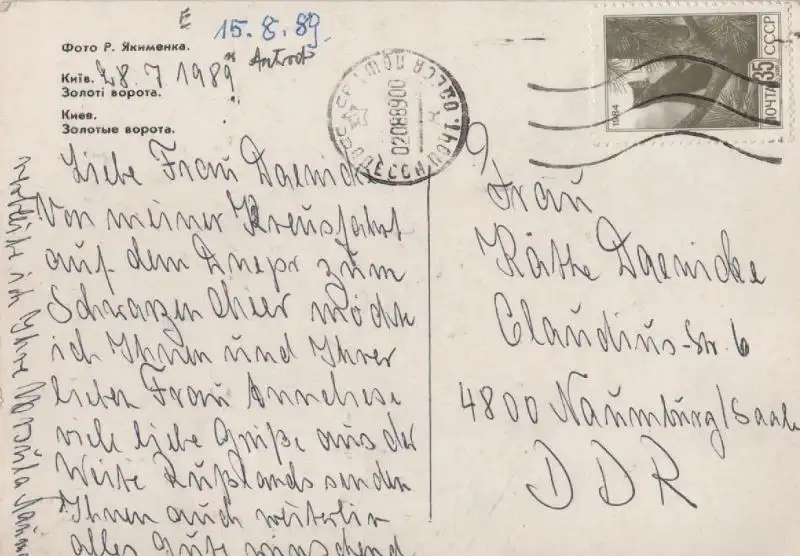 E 15.8.89
Фото Р. Якименка.
Antrod
Київ. 28.7 1989
Золоті ворота.
Киев.
Золотые ворота.
Liebe Frau Daenicke
Von meiner Kreusfahrt
auf dem Dnepr zum
Schwarzen Meer möchte
ich Ihnen und Ihrer
lieben Frau Anneliese
viele liebe Grüße aus der
Weite Rußlands senden
Ihnen auch weiterhin
alles Gute wünschend
verbleibe ich Ihre Ursula
ОДЕССА ПОЧТАМТ
СССР
02088900
1984
ПОЧТА СССР
35
Frau
Käthe Daenicke
Claudius-Str. 6
4800 Naumburg/Saale
DDR